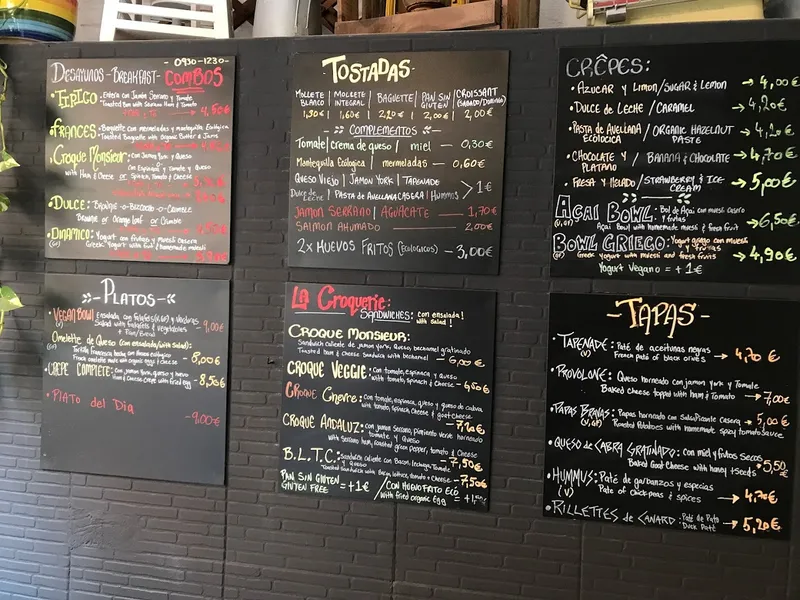 - 0930-1230-
DESAYUNOS - BREAKFAST - COMBOS
• TIPICO: Entera con Jamón Serrano y Tomate
Toasted Bun with Serrano Ham & Tomato
4,50€
• FRANCES: Baguette con mermeladas y mantequilla Ecológica
Toasted Baguette with Organic Butter & Jams
Croque Monsieur: con Jamon York y Queso
con Espinaca y Tomate y Queso
with Ham & Cheese or Spinach, Tomato & Cheese
• DULCE: BROWNIE o BIZCOCHO o CRUMBLE
BROWNIE or
or Crumble
• DINAMICO: Yogurt con frutas y Muesli Casero
Greek Yogurt with Fruit & homemade muesli
TOSTADAS
MOLLETE BLANCO | MOLLETE INTEGRAL | BAGUETTE | PAN SIN GLUTEN | CROISSANT (SABADO/DOMINGO)
1,30€ | 1,60€ | 2,20€ | 2,00€ | 2,00€
COMPLEMENTOS
Tomate / crema de queso / miel — 0,30€
Mantequilla Ecologica / mermeladas — 0,60€
QUESO VIEJO | JAMON YORK | TAPENADE
DULCE DE LECHE | PASTA DE AVELLANA CASERA | HUMMUS > 1€
JAMON SERRANO / AGUACATE — 1,70€
SALMON AHUMADO 2,00€
2x HUEVOS FRITOS (ECOLOGICOS) - 3,00€
CRÊPES:
• AZUCAR Y LIMON / SUGAR & LEMON → 4,00€
• DULCE DE LECHE / CARAMEL → 4,20€
• PASTA DE AVELLANA ECOLOGICA / ORGANIC HAZELNUT PASTE → 4,20€
• CHOCOLATE Y PLATANO / BANANA & CHOCOLATE → 4,70€
• FRESA Y HELADO / STRAWBERRY & ICE CREAM → 5,00€
AÇAI BOWL: Bol de Açai con muesli casero y frutas
Açai Bowl with homemade muesli & fresh fruit → 6,50€
BOWL GRIEGO: Yogurt griego con muesli y frutas
Greek Yogurt with muesli and fresh fruits → 4,90€
Yogurt Vegano = +1€
- PLATOS -
• VEGAN BOWL Ensalada con Falafels (V,GF) y Verduras
Salad with falafels & vegetables 9,00€
• Omelette de Queso (con ensalada/with salad):
Tortilla Francesa hecha con huevos ecologicos
French omelette made with organic eggs & cheese - 8,00€
• CRÊPE COMPLETE: con jamon york, queso y huevo
Ham & cheese crêpe with fried egg - 8,50€
• PLATO del Dia
- 9,00€
La Croquerie:
SANDWICHES: con ensalada!
with salad!
CROQUE MONSIEUR:
Sandwich caliente de jamon york, queso, bechamel gratinado
Toasted ham & cheese Sandwich with bechamel - 6,00€
CROQUE VEGGIE: con tomate, espinaca y queso
with tomato, spinach & Cheese - 6,50€
CROQUE Chevre: con tomate, espinaca, queso y queso de cabra
with tomato, spinach, Cheese & goat cheese - 7,20€
CROQUE ANDALUZ: con jamon Serrano, pimiento verde horneado
tomate y Queso
with Serrano ham, roasted green pepper, tomato & Cheese - 7,50€
B.L.T.C: Sandwich caliente con Bacon, lechuga, Tomate y Queso
Toasted Sandwich with Bacon, lettuce, tomato & Cheese - 7,50€
PAN SIN GLUTEN
GLUTEN FREE = +1€ / CON HUEVO FRITO ECO
with fried organic Egg = +1,
- TAPAS -
• TAPENADE: Paté de aceitunas negras
(V) French paté of black olives → 4,70€
• PROVOLONE: Queso horneado con jamon york y Tomate
Baked cheese topped with ham & Tomato → 7,00€
• PAPAS BRAVAS: Papas horneado con Salsa Picante Casera
(V,GF) Roasted Potatoes with homemade spicy tomato sauce 5,00€
• QUESO DE CABRA GRATINADO: Con miel y frutos secos
Baked Goat Cheese with honey & seeds • 5,50€
• HUMMUS: Paté de garbanzos y especias
(V) Pate of chickpeas & spices → 4,70€
• RILLETTES de CANARD: Paté de Pato
Duck Paté → 5,20€